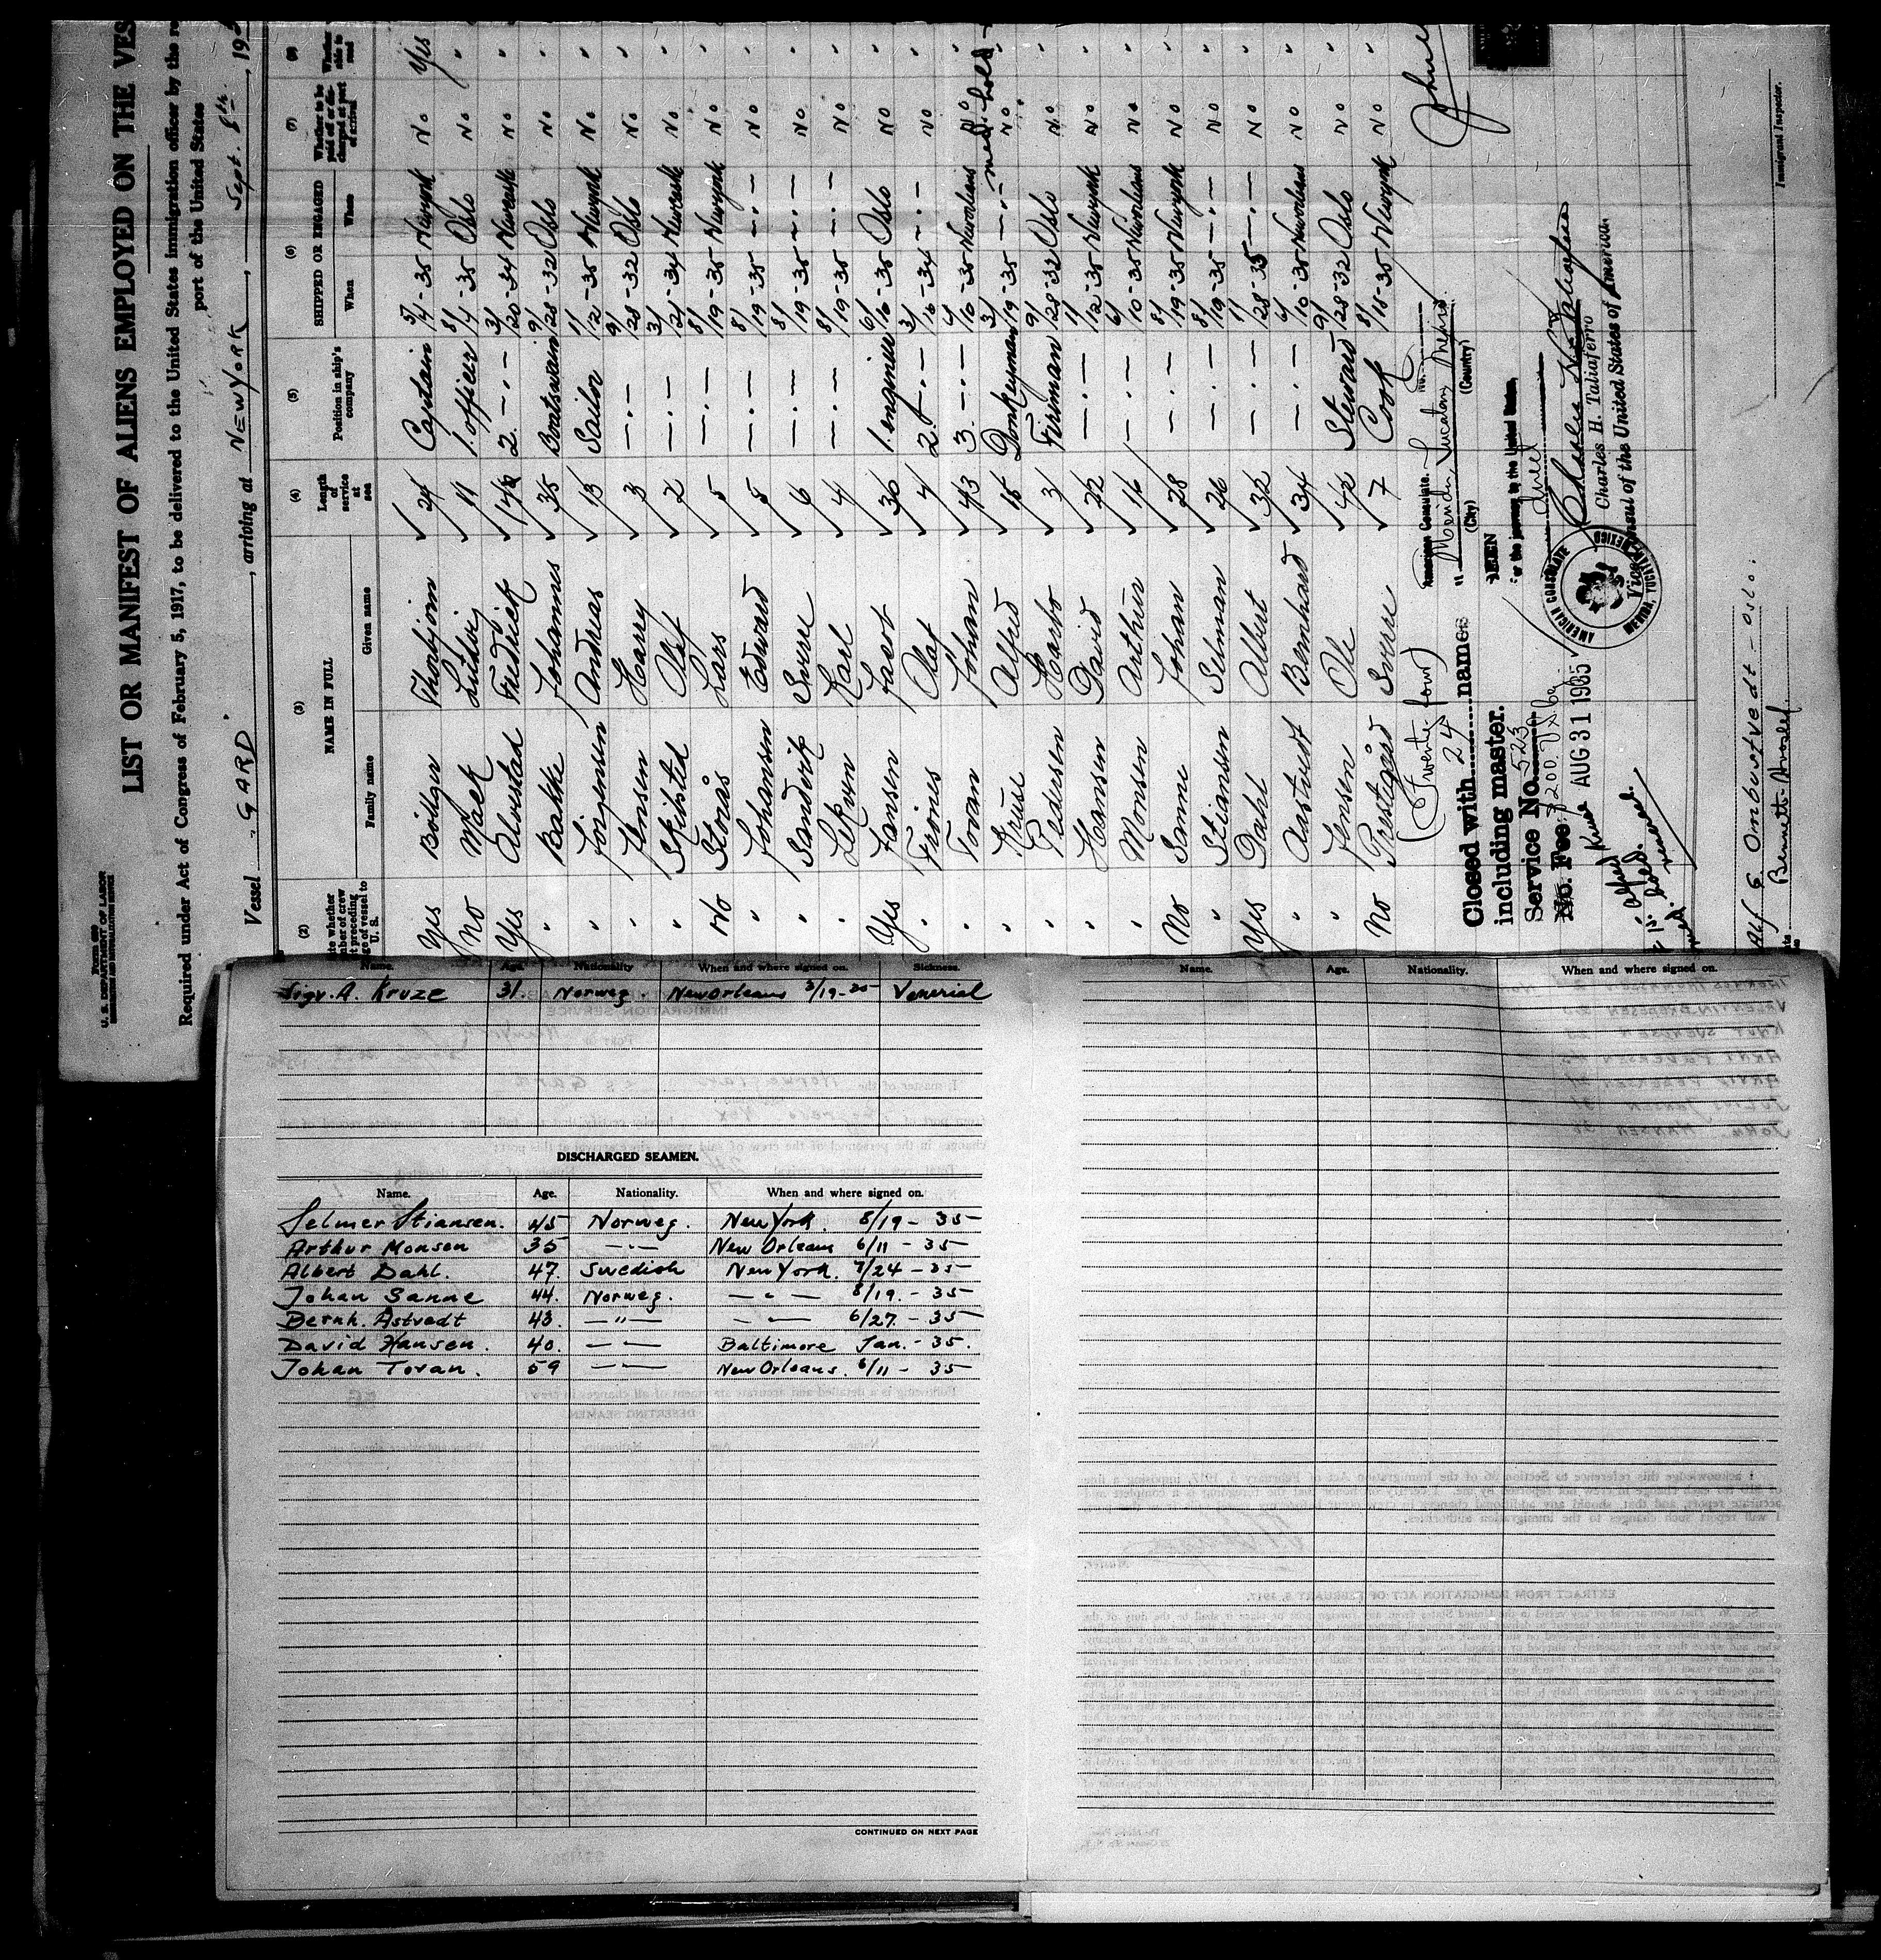 Form 689
U. S. DEPARTMENT OF LABOR
LIST OR MANIFEST OF ALIENS EMPLOYED ON THE VES
Required under Act of Congress of February 5, 1917, to be delivered to the United States immigration officer by the re
port of the United States
Vessel "GARD", arriving at NEW YORK, Sept. 8th, 19
(2) (3) (4) (5) (6) (7) (8)
NAME IN FULL Length of service at sea Position in ship's company SHIPPED OR ENGAGED Whether to be paid off or discharged at port of arrival Whether able to read
Family name Given name When Where
Yes Böttger Thorbjorn 24 Captain 5/4-35 Newyork No Yes
No Maek Ludvig 11 1. officer 8/4-35 Oslo No "
Yes Alvestad Fredrick 14 2. —.— 3/20-34 Newcastle No "
" Bakke Johannes 35 Boatswain 9/28-32 Oslo No "
" Jorgensen Andreas 13 Sailor 1/12-35 Newyork No "
" Jensen Harry 3 —.— 9/28-32 Oslo No "
" Skifstad Olef 2 —.— 3/21-34 Newcastle No "
No Storås Lars 5 —.— 8/19-35 Newyork No "
" Johansen Edward 5 —.— 8/19-35 —.— No "
" Sandvik Sverre 6 —.— 8/19-35 —.— No "
" Karl 4 —.— 8/19-35 —.— No "
Yes Hansen Jacob 36 1. engineer 6/16-35 Oslo No "
" Friones Olaf 4 2. —.— 3/16-34 —.— No "
" Tovan Johan 43 3. —.— 4/10-35 Neworleans No "
" Kruse Alfred 15 Donkeyman 3/19-35 —.— No "
med. hold
" Pedersen Harbo 3 Fireman 9/28-32 Oslo No "
" Hansen David 22 —.— 1/12-35 Newyork No "
" Monsen Arthur 16 —.— 6/10-35 Neworleans No "
No Sanne Johan 28 —.— 8/19-35 Newyork No "
" Stiansen Selman 26 —.— 8/19-35 —.— No "
Yes Dahl Albert 32 —.— 1/28-35 —.— No "
" Aastvedt Bernhard 34 —.— 6/10-35 Neworleans No "
" Jensen Ole 42 Steward 9/28-32 Oslo No "
No Prestegård Sverre 7 Cook 8/18-35 Newyork No "
(Twenty four)
Closed with 24 names
including master.
Service No. 523
No. Fee
AUG 31 1935
American Consulate.
Merida, Yucatan, Mexico.
(City) (Country)
SEEN
for the journey to the United States
Charles H. Taliaferro
Vice Consul of the United States of America
AMERICAN CONSULATE
MERIDA, YUCATAN, MEXICO
Alfred Kruse
Immigrant Inspector.
Alf G Ombustvedt - Oslo.
Name. Age. Nationality When and where signed on. Sickness.
Sigv. A. Kruze 31. Norweg. New Orleans 3/19-35 Venerial
DISCHARGED SEAMEN.
Name. Age. Nationality. When and where signed on.
Selmer Stiansen. 45 Norweg. New York. 8/19 - 35
Arthur Monsen 35 —"— New Orleans 6/11 - 35
Albert Dahl. 47. Swedish New York. 7/24 - 35
Johan Sanne 44. Norweg. — " — 8/19. - 35
Bernh. Åstvedt 48. —"— — " — 6/27. - 35
David Hansen. 40. —"— Baltimore Jan. - 35.
Johan Tovan. 59 —"— New Orleans. 6/11 - 35
CONTINUED ON NEXT PAGE
Name. Age. Nationality. When and where signed on.